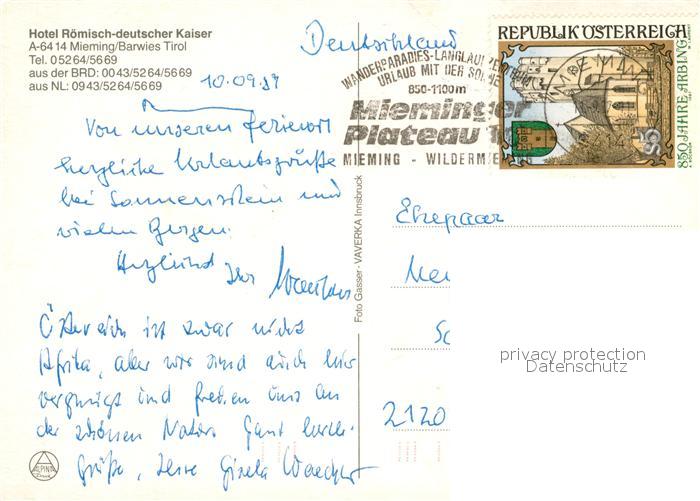 Hotel Römisch-deutscher Kaiser
A-6414 Mieming/Barwies Tirol
Tel. 05264/5669
aus der BRD: 0043/5264/5669
aus NL: 0943/5264/5669
Deutschland
10.09.89
WANDERPARADIES-LANGLAUF
URLAUB MIT DER SONNE
850-1100m
Mieminger
Plateau
MIEMING - WILDERMIEMING
REPUBLIK ÖSTERREICH
850 JAHRE ARBING
S 5
Von unseren Ferienort
herzliche Urlaubsgrüße
bei Sonnenschein und
vielen Bergen.
Herzlichst Ihr
Österreich ist zwar nicht
Afrika, aber wir sind auch hier
vergnügt und freuen uns an
der schönen Natur. Ganz herzl.
Grüße, Ihre Gisela Waechter
Foto Gasser - VAVERKA Innsbruck
ALPINA
Ehepaar
2120
privacy protection
Datenschutz